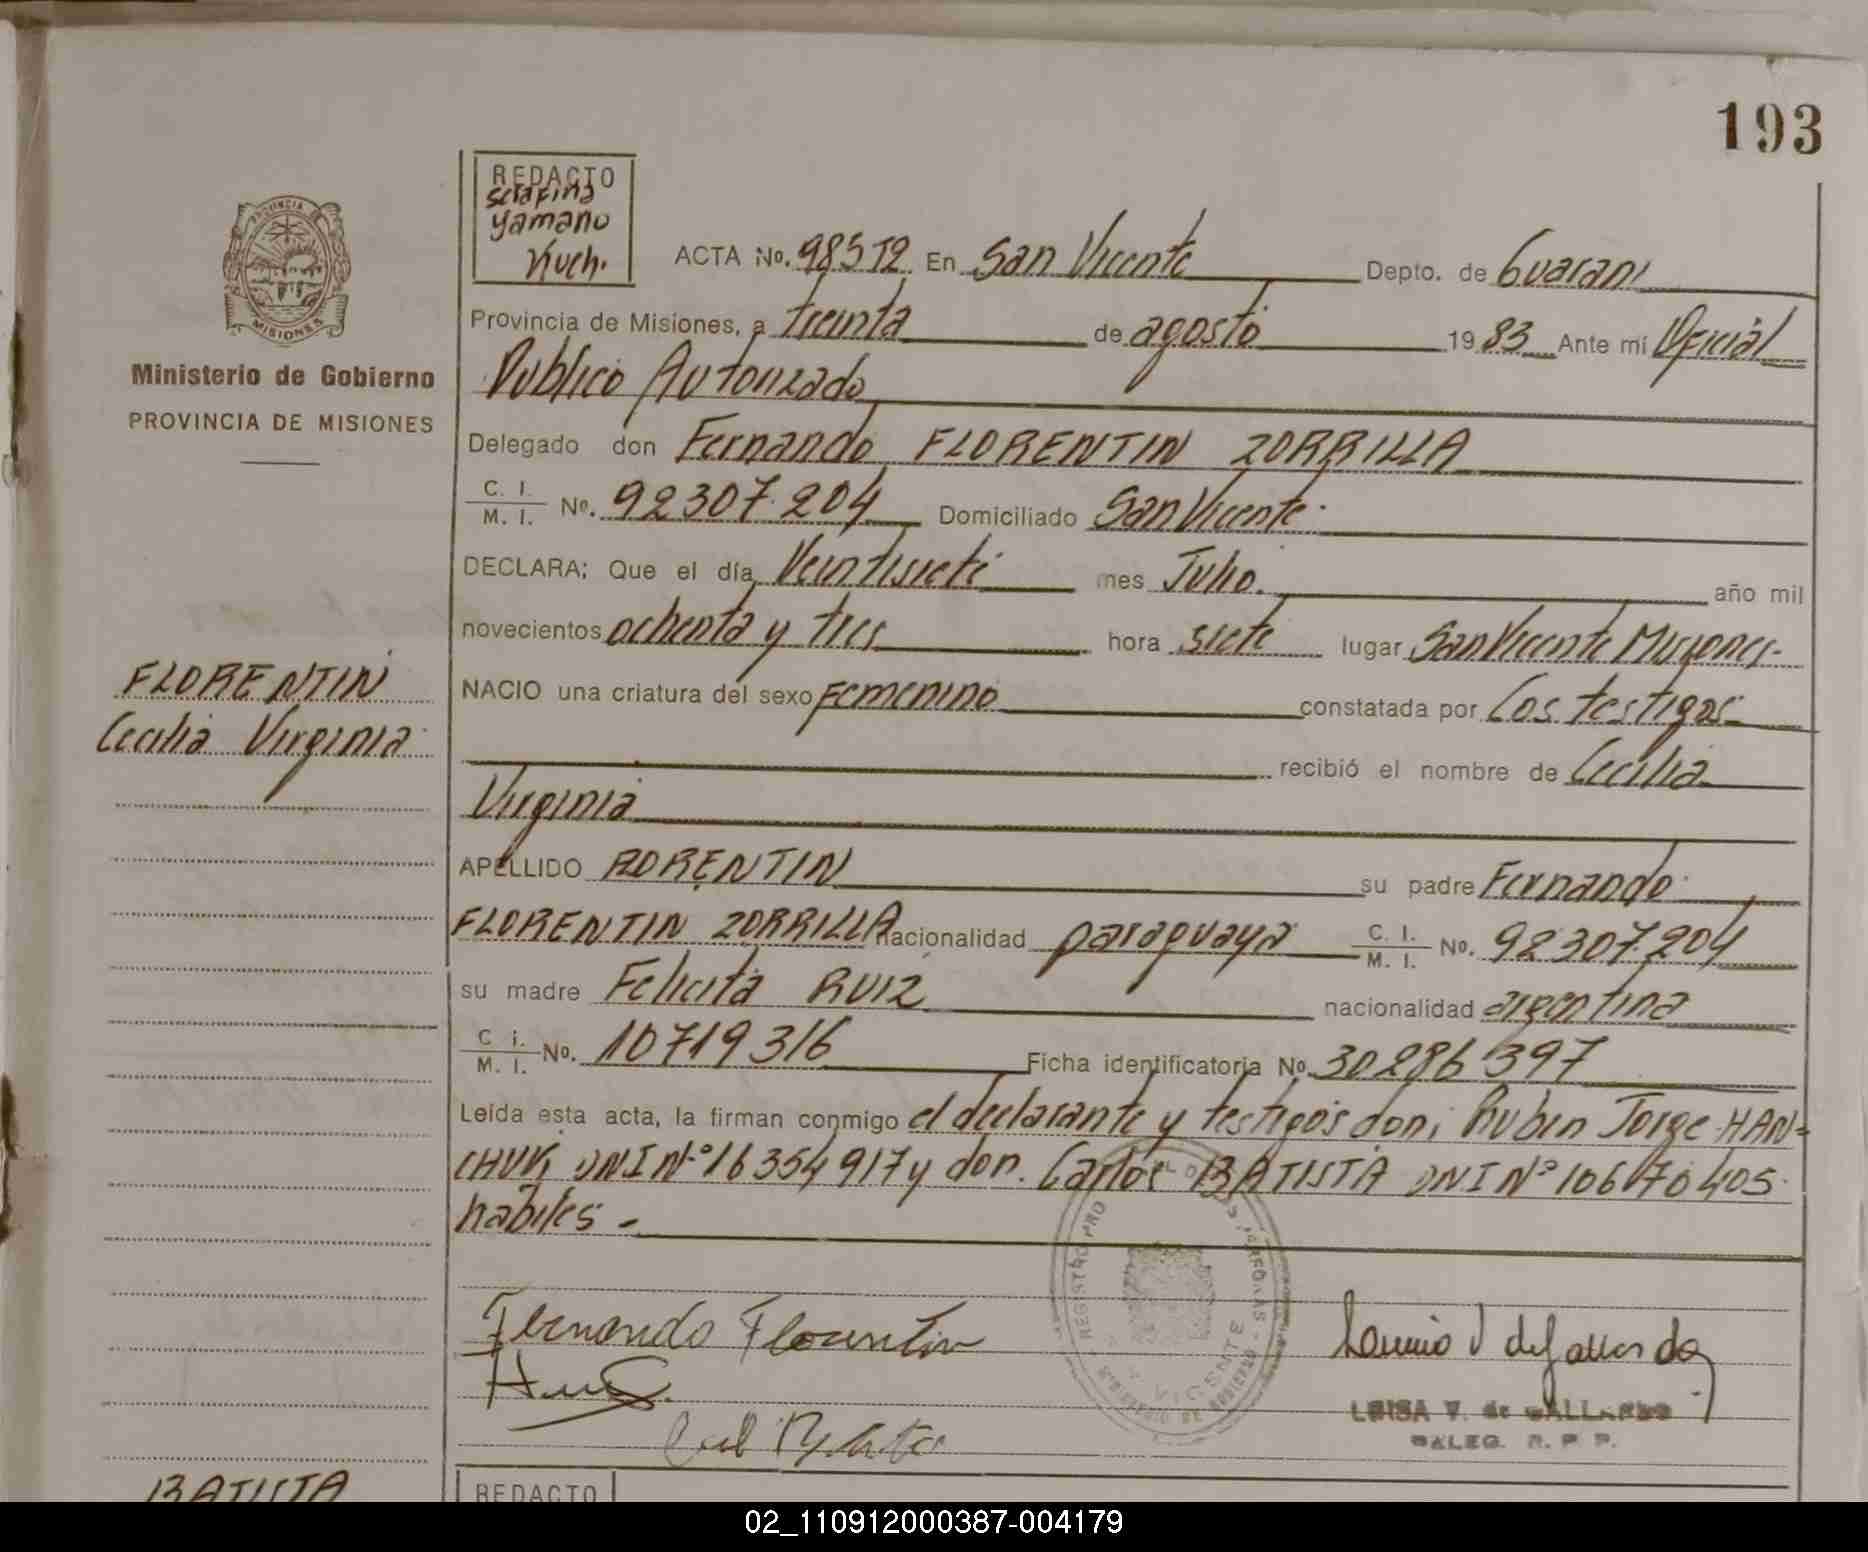 193
REDACTO
serafina
yamano
Kuch.
PROVINCIA DE
MISIONES
Ministerio de Gobierno
PROVINCIA DE MISIONES
ACTA No. 98512 En San Vicente Depto. de Guarani
Provincia de Misiones, a treinta de agosto 1983 Ante mí Oficial
Publico Autorizado
Delegado don Fernando FLORENTIN ZORRILLA
C. I.
M. I. No. 92307.204 Domiciliado San Vicente.
DECLARA; Que el día Veintisiete mes Julio. año mil
novecientos ochenta y tres hora siete lugar San Vicente Misiones-
NACIO una criatura del sexo femenino constatada por Los testigos
recibió el nombre de Cecilia
Virginia
FLORENTIN
Cecilia Virginia
APELLIDO FLORENTIN su padre Fernando
FLORENTIN ZORRILLA nacionalidad paraguaya C. I.
M. I. No. 92307.204
su madre Felicita RUIZ nacionalidad argentina
C. I.
M. I. No. 10719316 Ficha identificatoria No. 30286397
Leída esta acta, la firman conmigo el declarante y testigos don; Ruben Jorge HAN=
CHUK, DNI N.º 16354917 y don. Carlos BATISTA DNI Nº
habiles -
Fernando Florentin
VICENTE
LUISA V. de GALLARDO
DELEG. R. P. P.
BATISTA
REDACTO
02_110912000387-004179